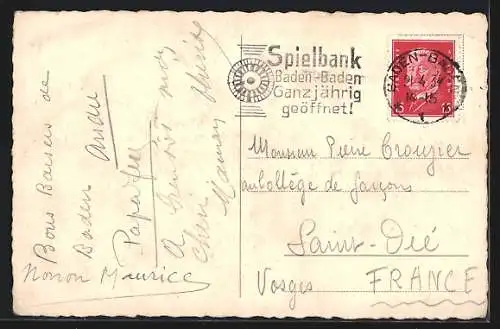 Bons Baisers de
Baden
Papa
A bientôt mon
chéri
Maman
Nonon Maurice
Spielbank
Baden-Baden
Ganzjährig
geöffnet!
BADEN-BADEN
15 15
Monsieur Pierre Croupier
au Collège de Garçons
Saint-Dié
Vosges FRANCE